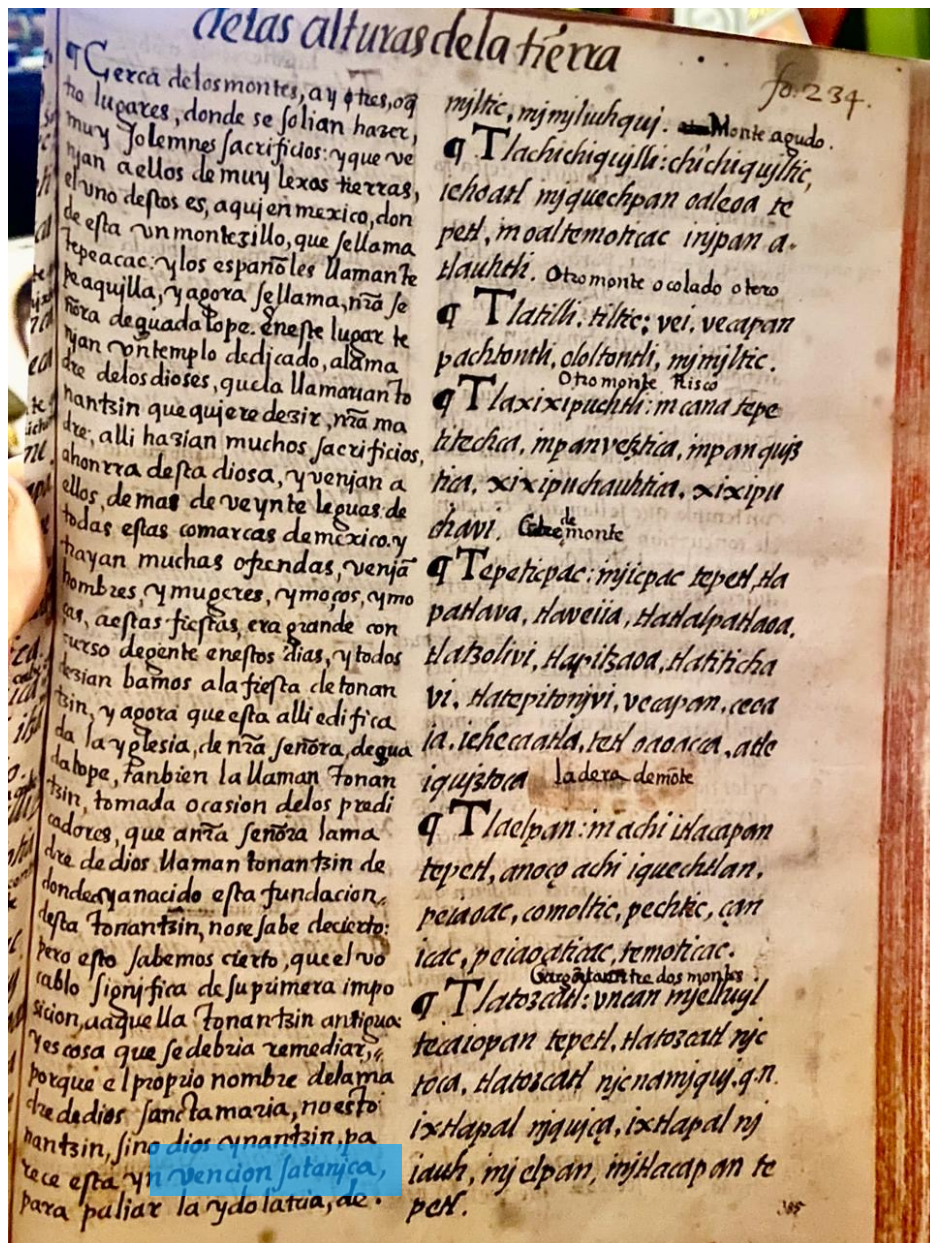 de las alturas dela tierra
fo. 234.
¶ Cerca delos montes, ay tres, o q̃
tro lugares, donde se solian hazer,
muy solemnes sacrificios: y que ve
njan a ellos de muy lexos tierras,
el uno destos es, aquj en mexico, don
de esta vn montezillo, que se llama
tepeacac: y los españoles llaman te
peaquilla, y agora se llama, nr̃a se
ñora de guadalope. en este lugar te
njan vn templo dedicado, ala ma
dre delos dioses, que la llamauan to
nantzin que quiere dezir, nr̃a ma
dre, alli hazian muchos sacrificios,
ahonrra desta diosa, y venjan a
ellos, de mas de veynte leguas de
todas estas comarcas de mexico. y
trayan muchas ofrendas, venjã
hombres, y mugeres, y moços, y mo
ças, aestas fiestas, era grande con
curso de gente en estos dias, y todos
dezian bamos ala fiesta de tonan
tzin, y agora que esta alli edifica
da la yglesia, de nr̃a señora, de gua
dalope, tanbien la llaman Tonan
tzin, tomada ocasion delos predi
cadores, que anr̃a señora la ma
dre de dios llaman tonantzin de
donde aya nacido esta fundacion,
desta Tonantzin, no se sabe decierto:
pero esto sabemos cierto, que el vo
cablo signjfica de su primera impo
sicion, aaquella Tonantzin antigua:
Yes cosa que se debria remediar,
porque el proprio nombre dela ma
dre de dios sancta maria, no es to
nantzin, sino dios ynantzin, pa
rece esta ynvencion satanjca,
para paliar la ydolatria, de
mjltic, mjmjliuhquj. Monte agudo.
¶ Tlachichiquilli: chichiquiltic,
iehoatl mjquechpan odleoa te
petl, moaltemoticac injpan a-
tlauhtli. Otro monte o colado otero
¶ Tlatilli. tiltic; vei. vecapan
pachtontli, ololtontli, mjmjltic.
Otro monte Risco
¶ Tlaxixipuchtli: in cana tepe
titechca, inpanvetztica, inpanquiz
tica, xixipuchauhtica, xixipu
chavi. de monte
¶ Tepeticpac: mjicpac tepetl, tla
patlava, tlaveiia, tlatlalpatlaoa,
tlatzolivi, tlapitzaoa, tlatiticha
vi, tlatepitonjvi, vecapan, ceea
ia, iehecaatla, tetl oaoacca, atle
iquiztoca ladera de mõte
¶ Tlaelpan: in achi itlacapan
tepetl, anoço achi iquechtlan,
peiaoac, comoltic, pechtic, çan
icac, peiaoaticac, temoticac.
Garganta entre dos montes
¶ Tlatozcatl: vncan mjelluyl
tecaiopan tepetl, tlatozcatl njc
toca, tlatozcatl njcnamjquj. q.n.
ixtlapal njqujça, ixtlapal nj
iauh, mj elpan, mjtlacapan te
petl.
385